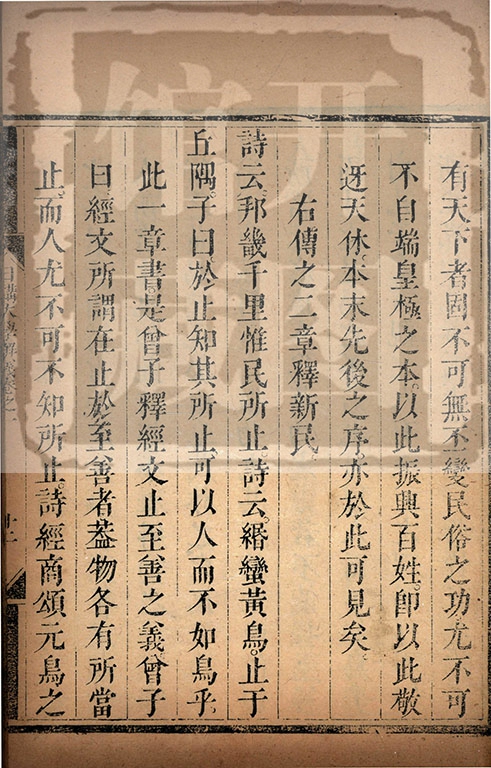 有天下者固不可無丕變民俗之功尤不可
不自端皇極之本以此振興百姓即以此敬
迓天休本末先後之序亦於此可見矣
右傳之二章釋新民
詩云邦畿千里惟民所止詩云緡蠻黃鳥止于
丘隅子曰於止知其所止可以人而不如鳥乎
此一章書是曾子釋經文止至善之義曾子
曰經文所謂在止於至善者葢物各有所當
止而人尤不可不知所止詩經商頌元鳥之
日講